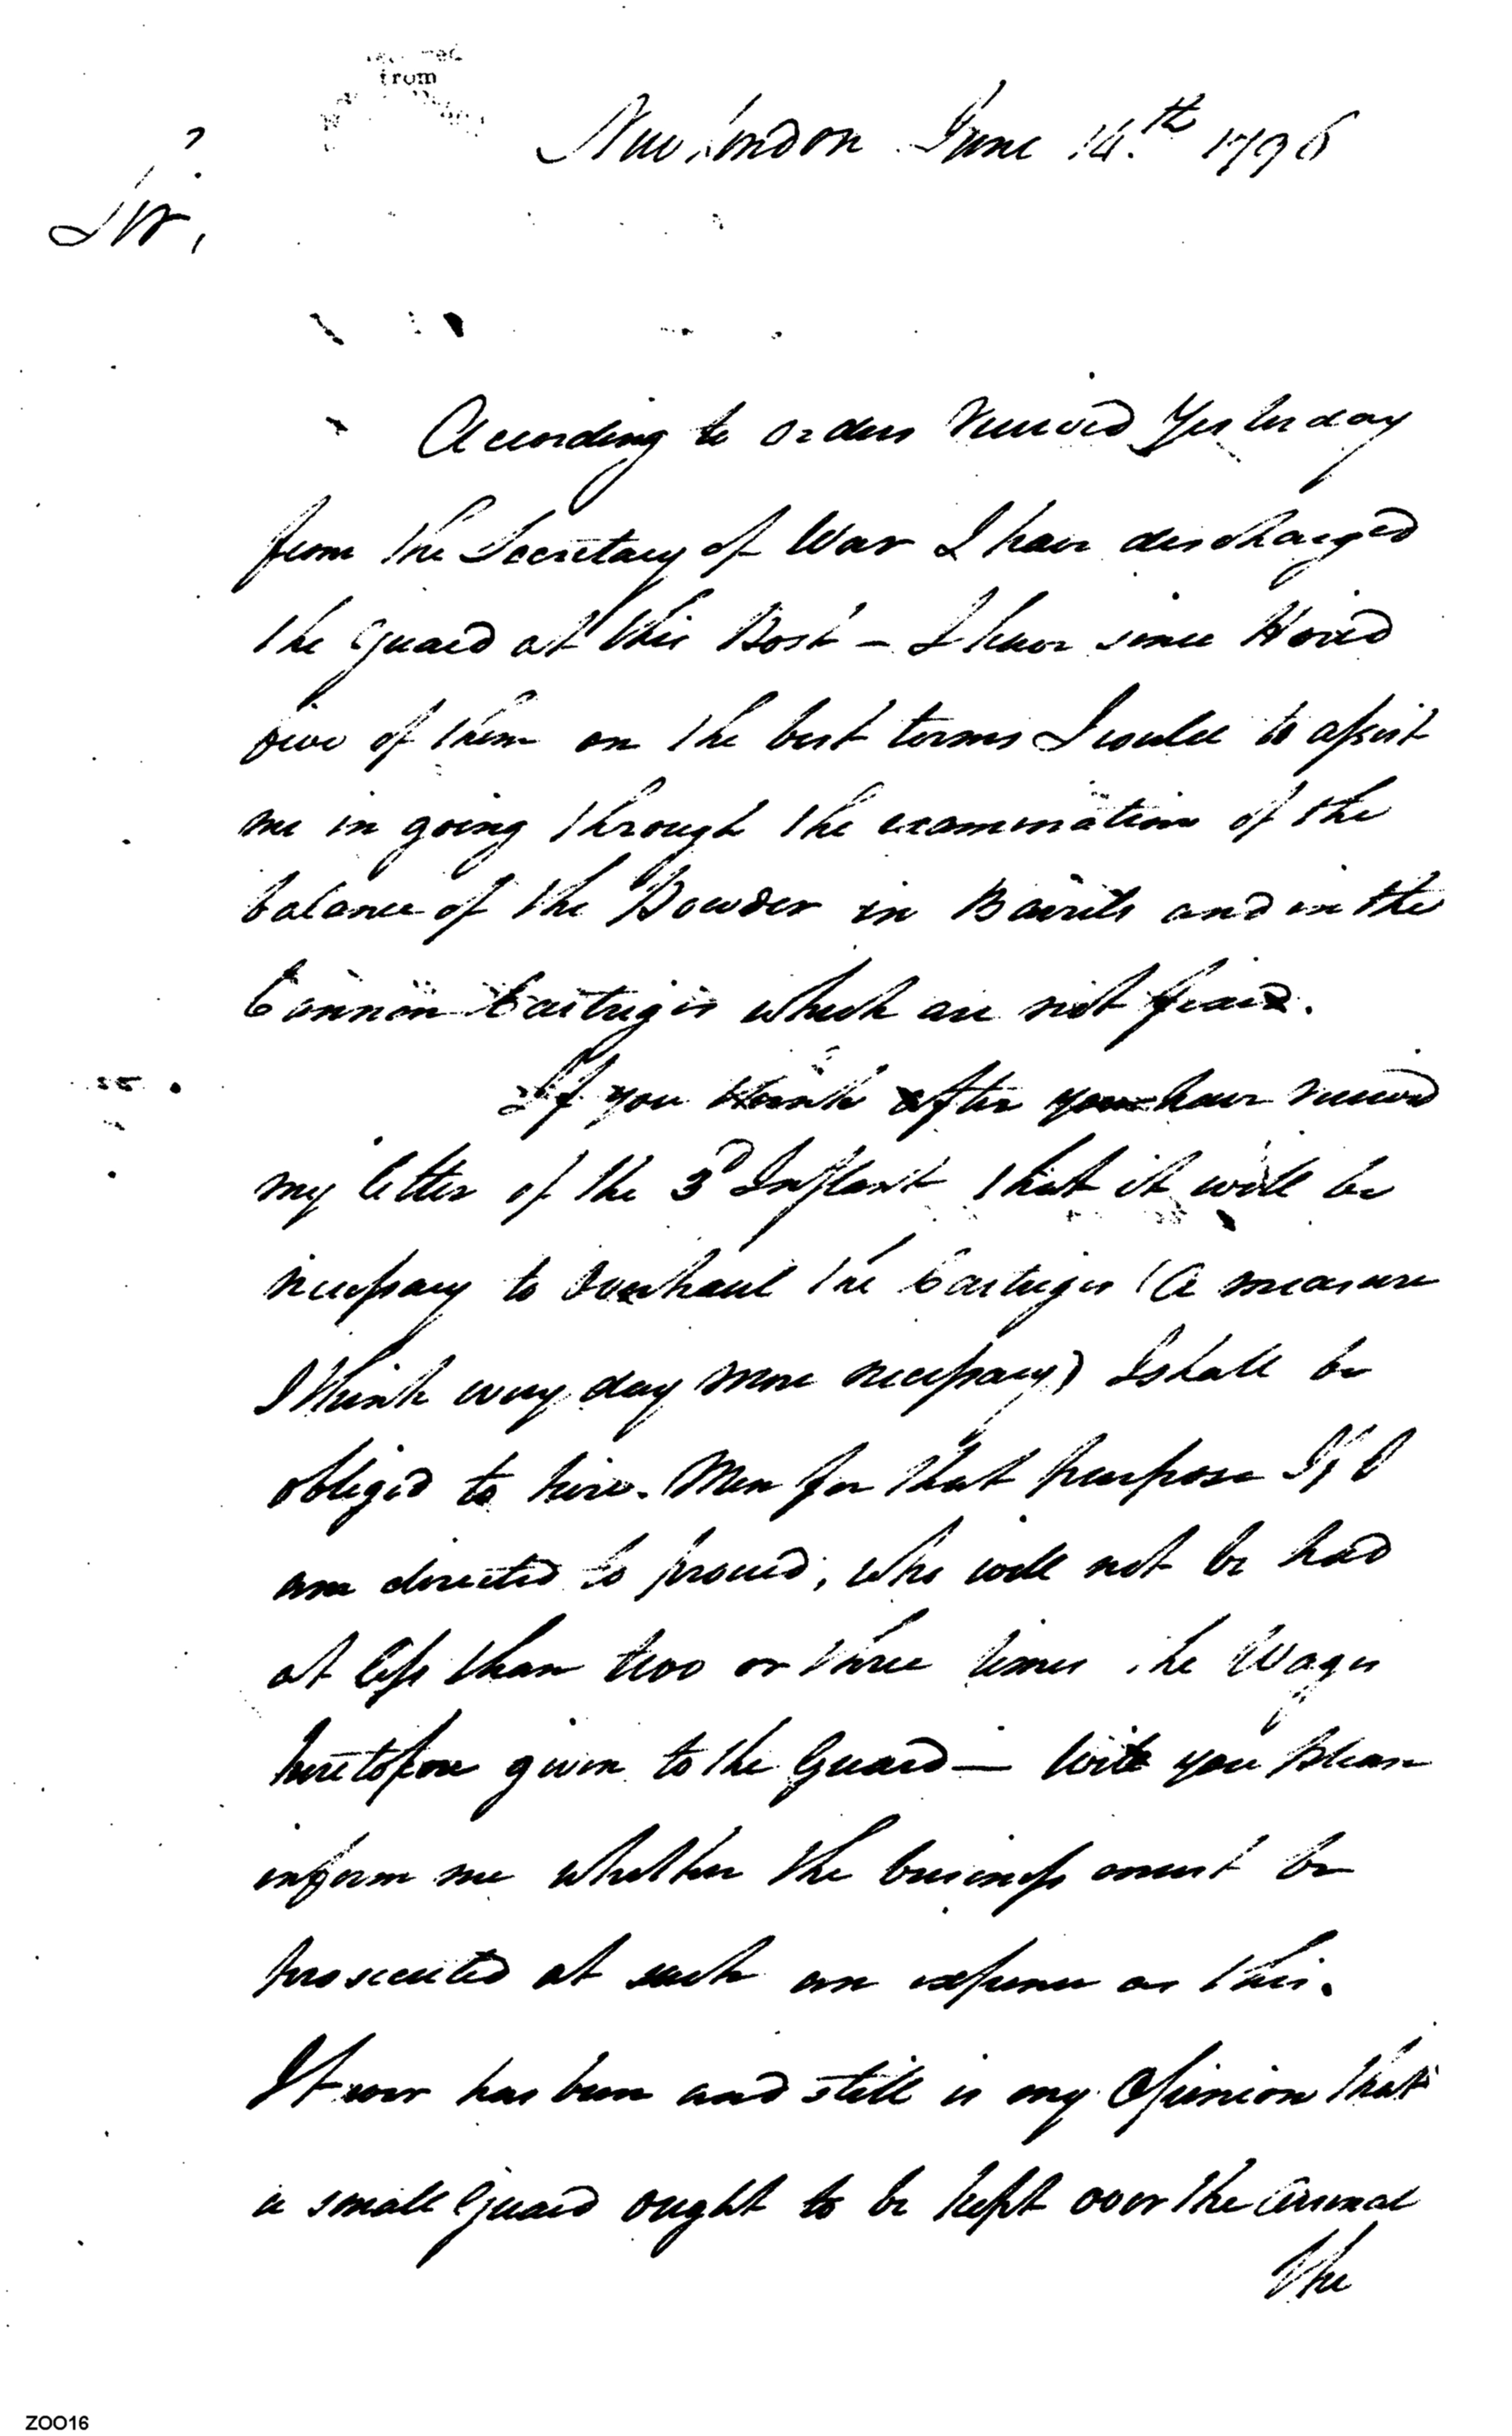 from
New London June 14.th 1796
Sir,
According to orders received Yesterday
from the Secretary of War I have discharged
the guard at this Post – I have since Hired
five of them on the best terms I could to assist
me in going through the examination of the
balance of the Powder in Barrels and in the
Cannon Cartriges which are not fixed.
If you think after you have received
my letter of the 3d Instant that it will be
necessary to overhaul the Cartriges (A measure
I think every day more necessary) I shall be
obliged to hire Men for that purpose If I
am directed to proceed, who will not be had
at less than two or three times the Wages
heretofore given to the Guard — Will you please
inform me whether the business must be
prosecuted at such an expense as this.
It ever has been and still is my Opinion that
a small Guard ought to be kept over the Arsenal
the
ZOO16